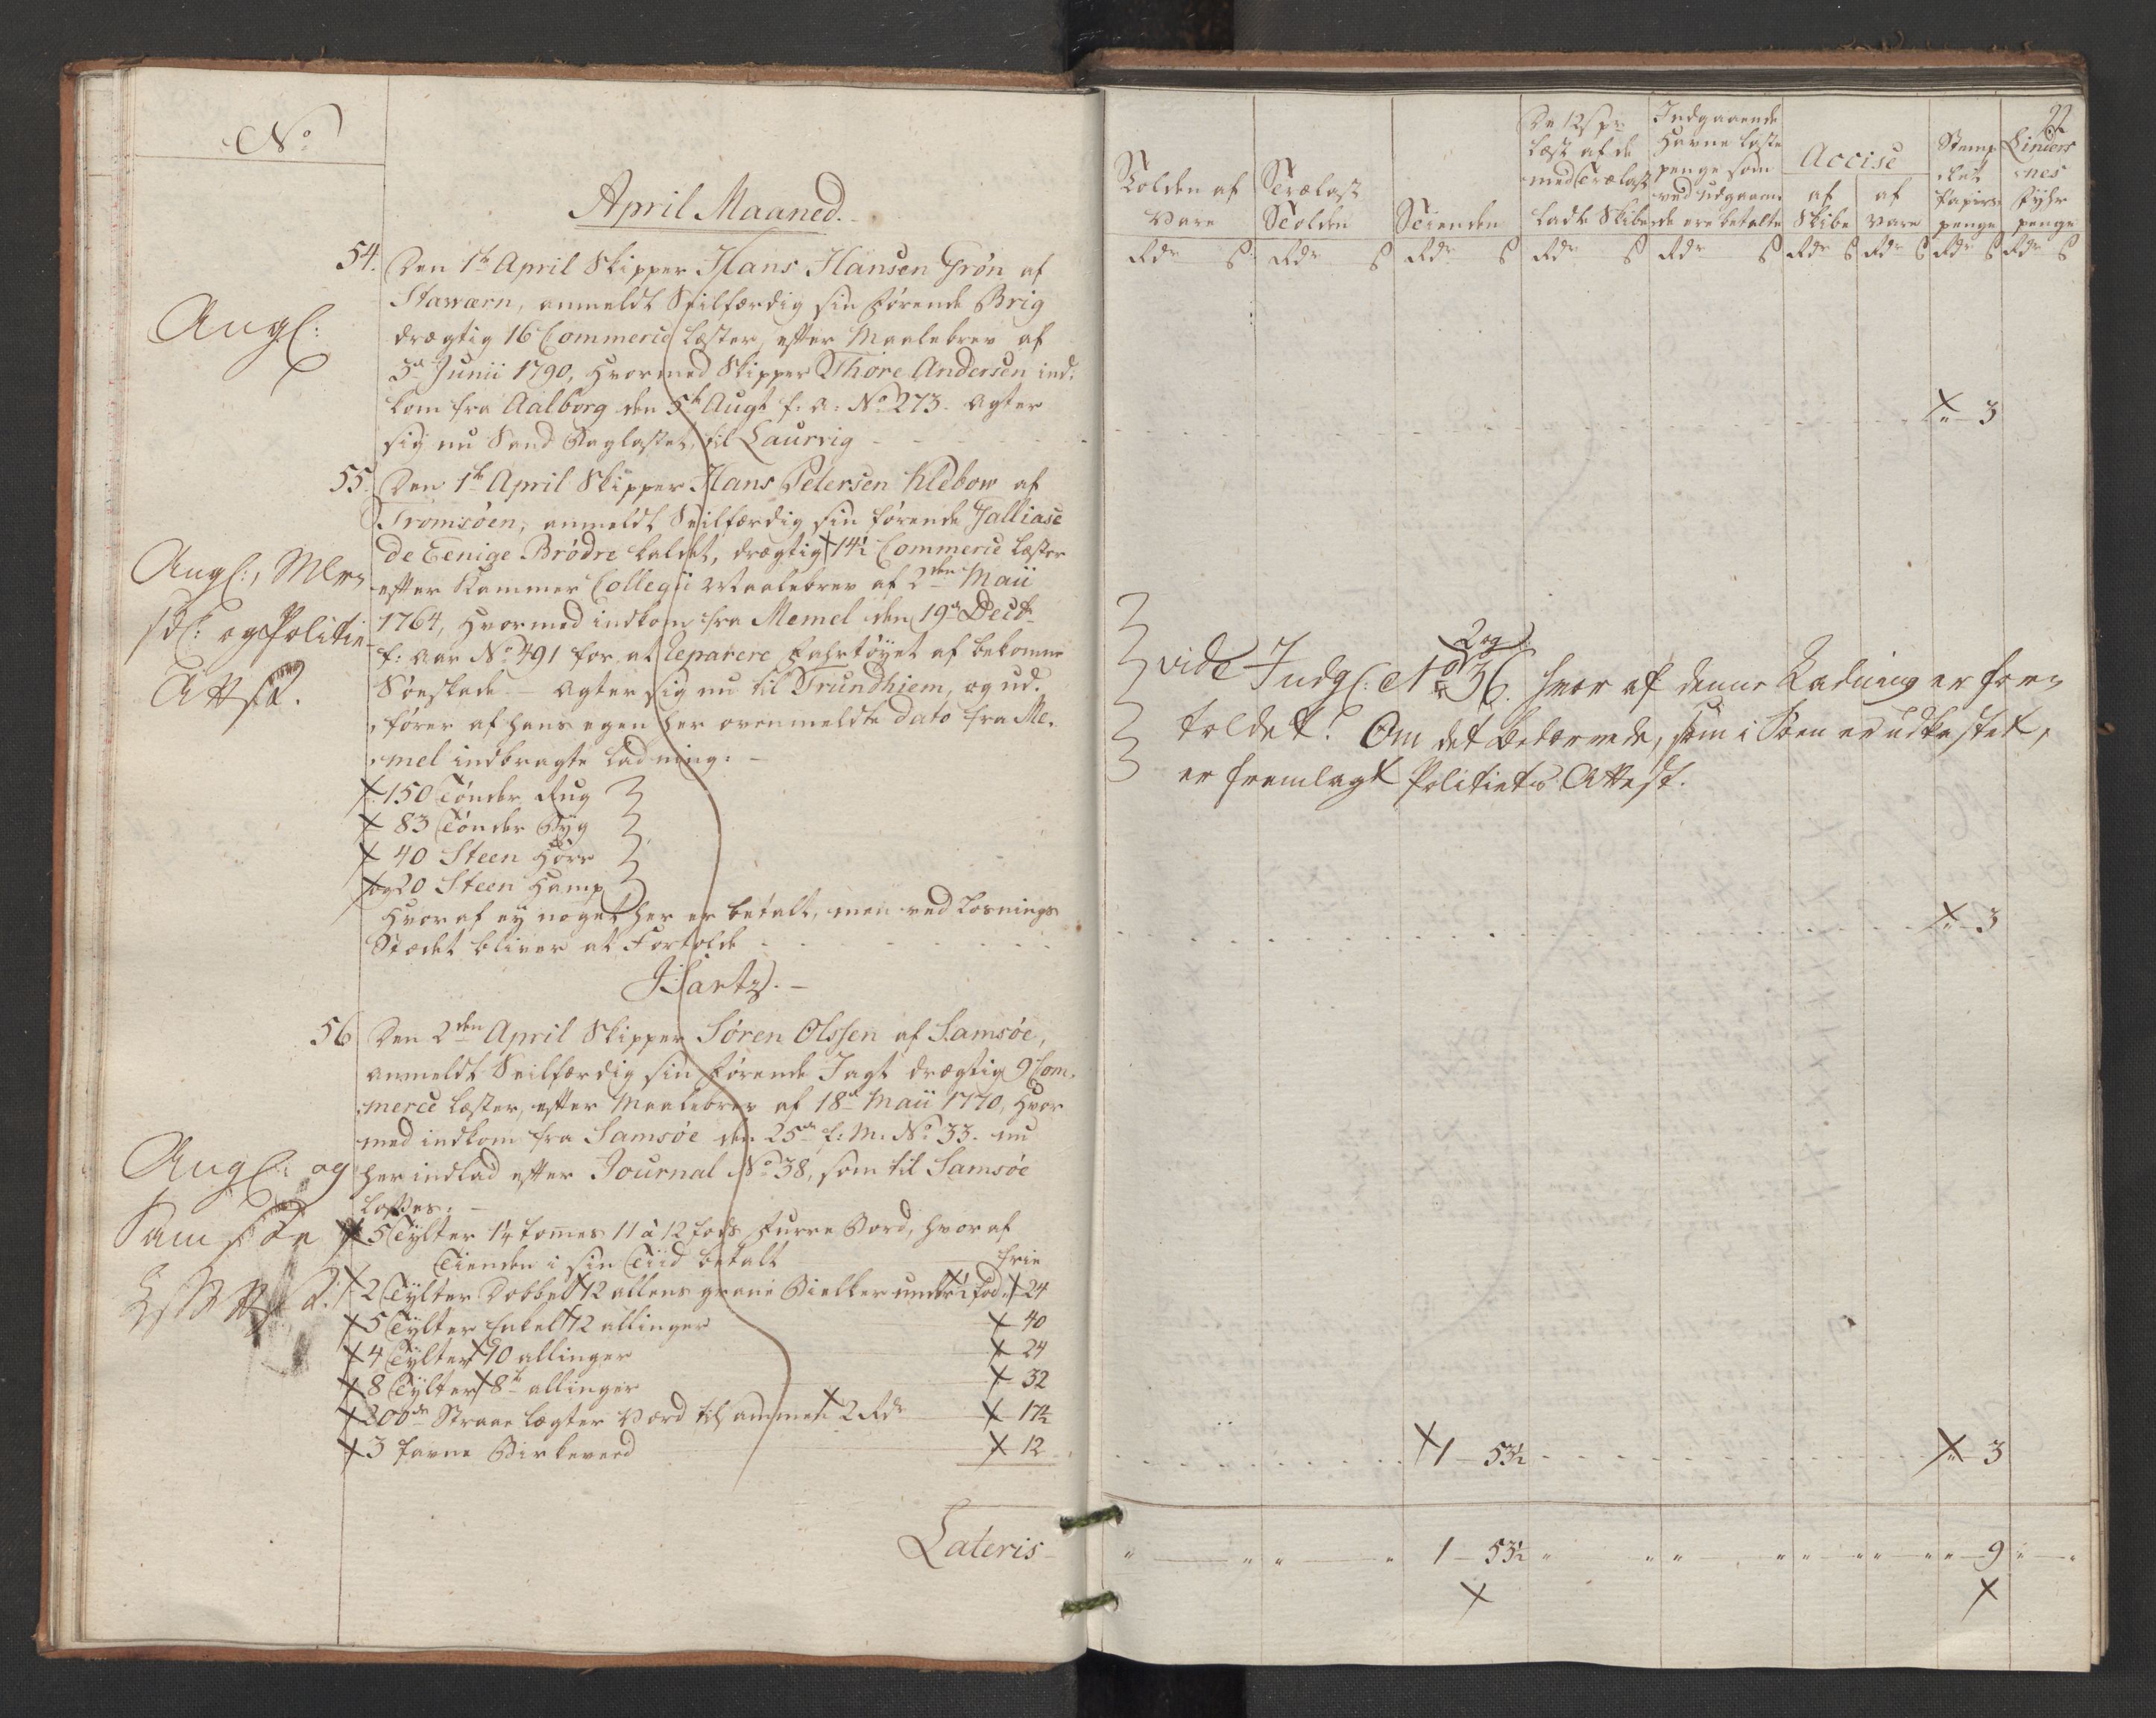 No
April Maaned.
54. Den 1te April Skipper Hans Hansen Grøn af
Stawærn, anmeldt Seilfærdig sin førende Brig
Angl:
drægtig 16 Commerce Læster, efter Maalebrev af
3de Junii 1790, hvormed Skipper Thore Andersen ind-
kom fra Aalborg den 5te Augt f: a: No 273. agter
sig nu Sand Baglastet, til Laurvig
55. Den 1te April Skipper Hans Petersen Klebow af
Tromsøen, anmeldt Seilfærdig sin førende Jalliase
de Eenige Brødre kaldet, drægtig 14½ Commerce Læster
Angl:,
efter Kammer Collegii Maalebrev af 2den Maii
1764, hvormed indkom fra Memel den 19de Decbr
og Politie
f: aar No 491 for at Reparere Fahrtøyet af bekomne
Attest.
Søeskade - agter sig nu til Trundhiem, og ud-
fører af hans egen her ovenmeldte dato fra Me-
mel indbragte Ladning:
150 Tønder Rug
83 Tønder Byg
40 Steen Hørr
og 20 Steen Hamp
Hvoraf ey noget her er betalt, men ved Losnings
Stædet bliver at Fortolde
56 Den 2den April Skipper Søren Olssen af Samsøe,
anmeldt Seilfærdig sin førende Jagt drægtig 9 Com-
merce Læster, efter Maalebrev af 18de Maii 1770, hvor
med indkom fra Samsøe den 25de f: M: No 33. nu
Angl: og
her indlad efter Journal No 38, som til Samsøe
Losses:
Samsøe
5 Tylter 1¼ tomes 11 à 12 fods Furre Bord, hvoraf
Tienden i sin Tiid betalt frie
2 Tylter Dobbelt 12 allens grane Bielker under ½ fod 24
5 Tylter Enkelt 12 allinger 40
4 Tylter 10 allinger 24
8 Tylter 8te allinger 32
200de Straae Lægter værd tilsammen 2 Rdr 17½
3 favne Birkeveed 12
Lateris
22
Tolden af Vare
Trælast Tolden
Tienden
De 12 s pr Læst af de med Trælast ladte Skibe
Indgaaende Havne Læste penge som ved udgaaende ere betalte
Accise
af Skibe
af Vare
Stemplet Papirs penge
Linders nes Fyhr penge
Rdr s Rdr s Rdr s Rdr s Rdr s Rdr s Rdr s Rdr s Rdr s
" 3
2 og
vide Indg: No 36. hvor af denne Ladning er for-
toldet. Om det Bedærvede, som i Søen er udkastet,
er fremlagt Politiets Attest.
" 3
1 - 53½ " 3
" " " " 1 - 53½ " " " " " " " " 9 " "